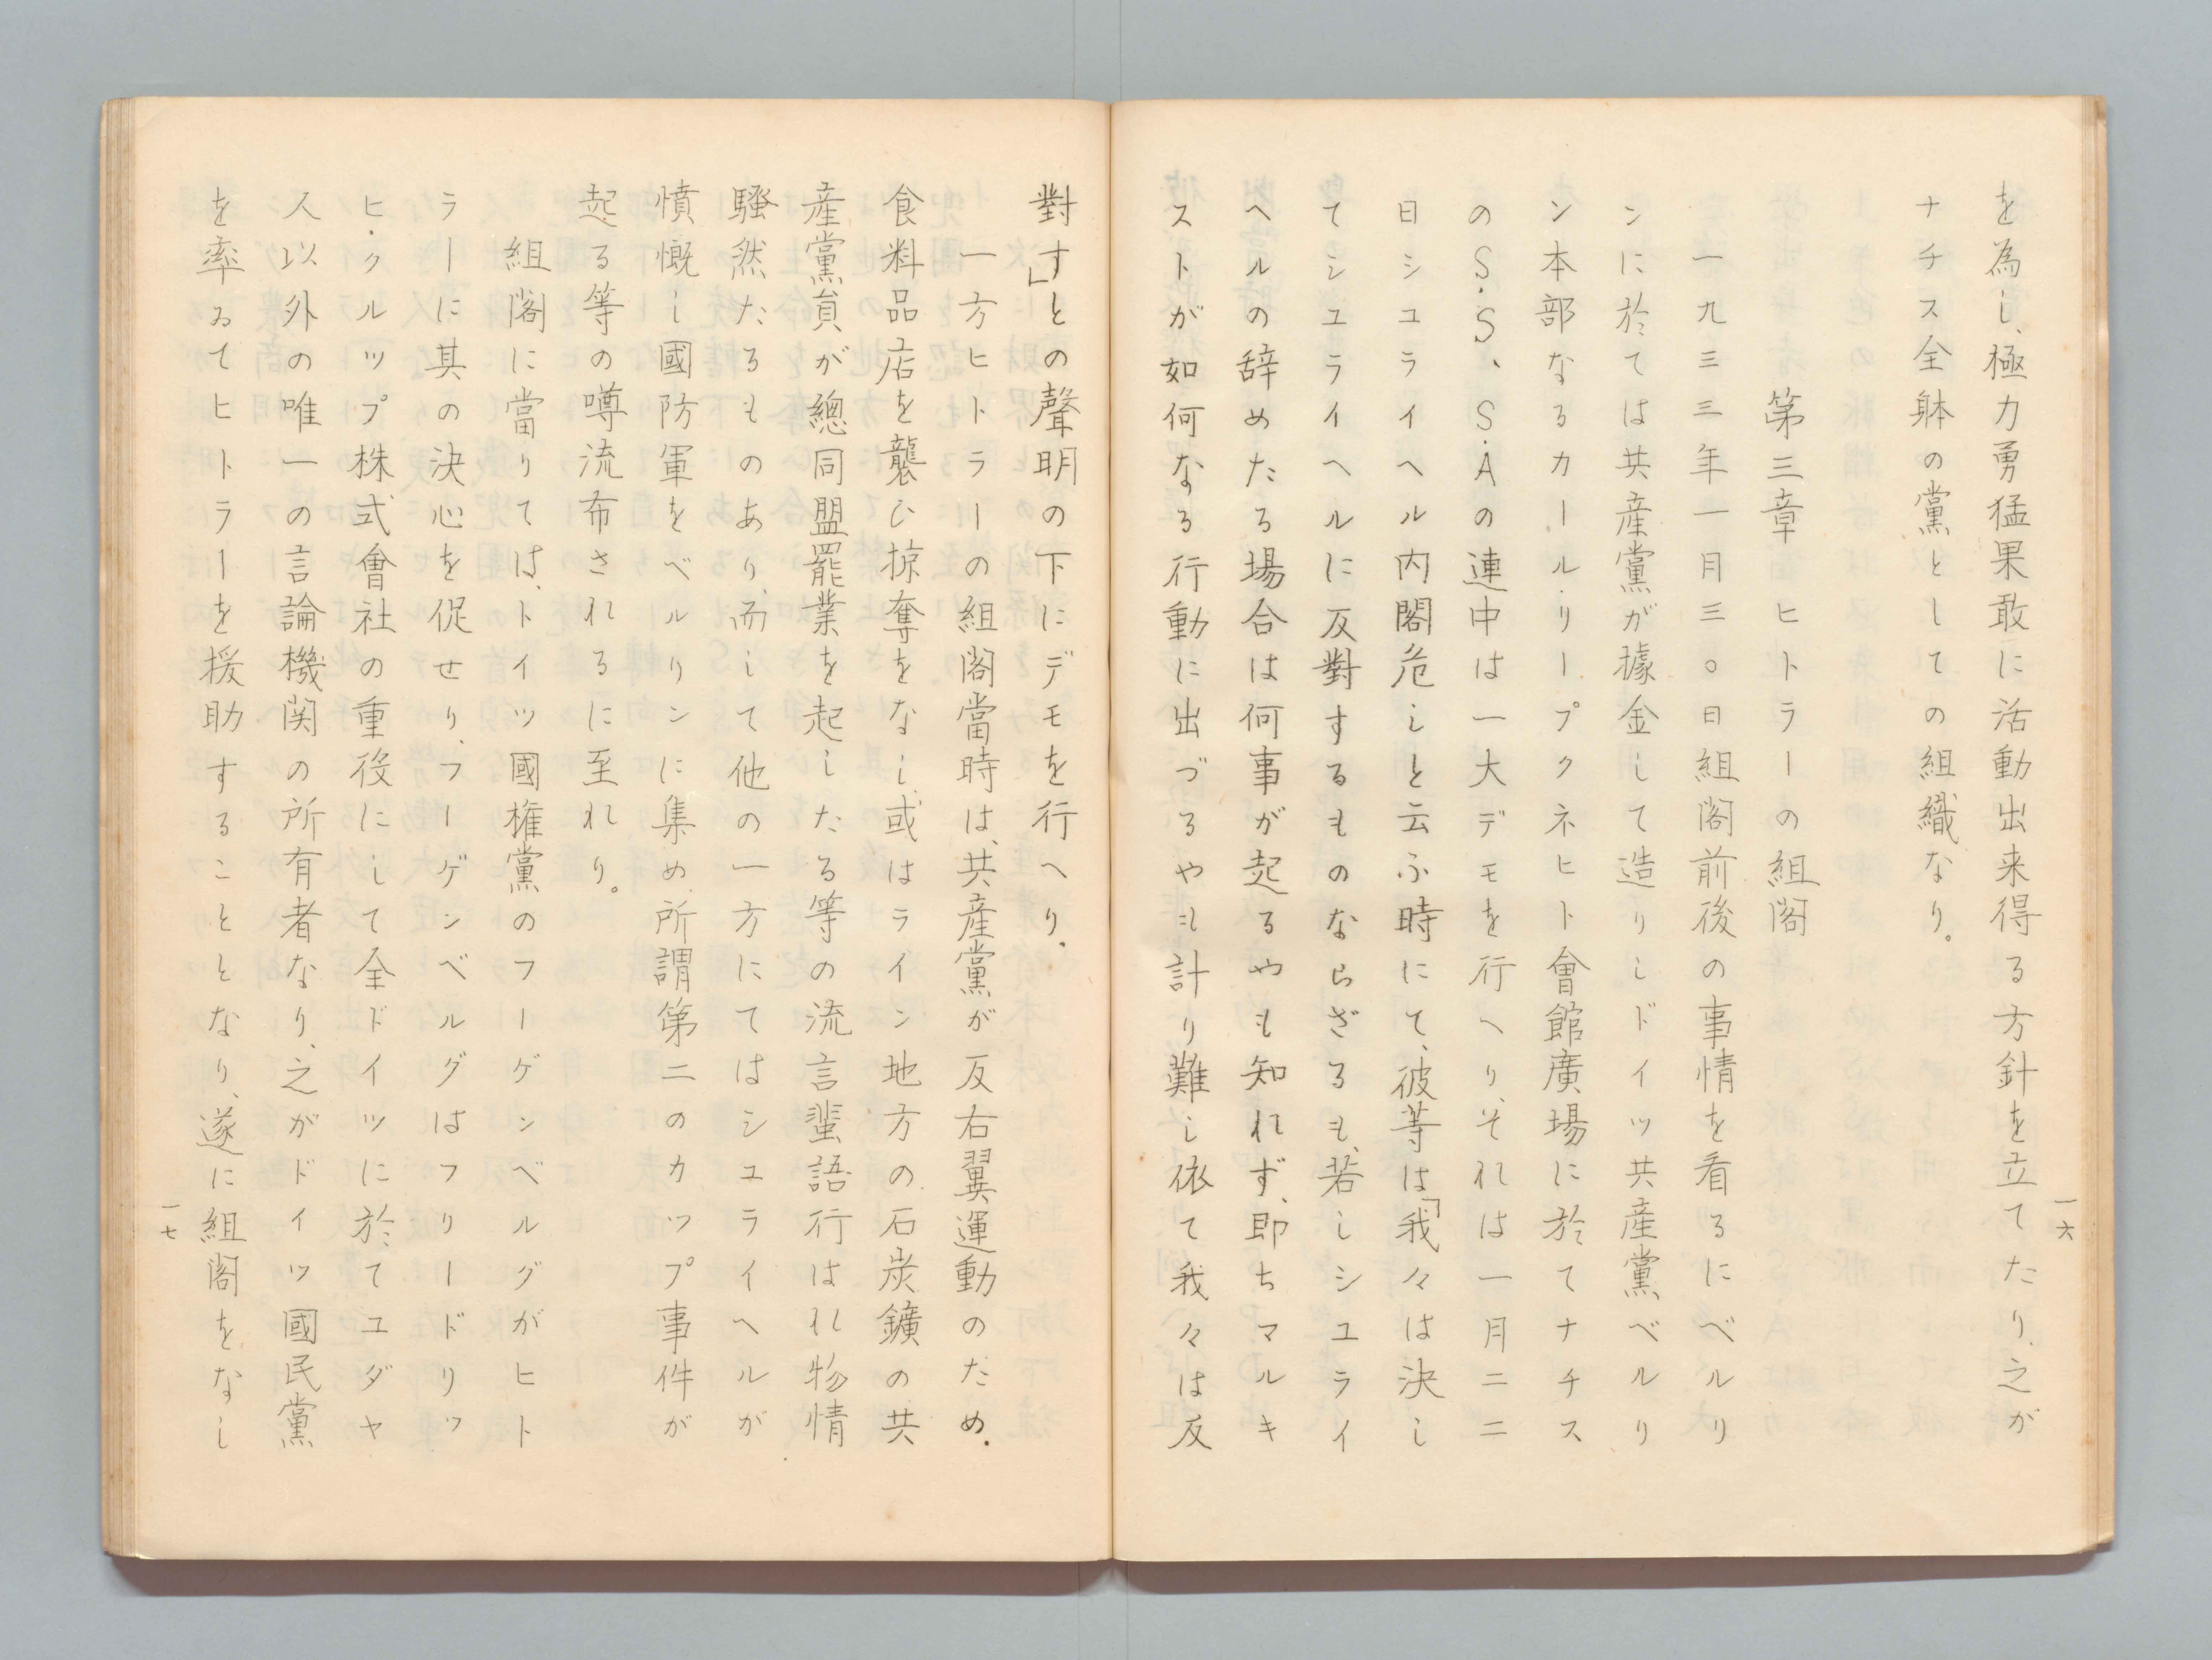 を為し、極力勇猛果敢に活動出来得る方針を立てたり、之が
ナチス全躰の黨としての組織なり。
第三章　ヒトラーの組閣
一九三三年一月三〇日組閣前後の事情を看るにベルリ
ンに於ては共産黨が據金して造りしドイツ共産黨ベルリ
ン本部なるカール・リープクネヒト會館廣場に於てナチス
のS・S、S・Aの連中は一大デモを行へり、それは一月二二
日シユライヘル内閣危しと云ふ時にて、彼等は「我々は決し
てシユライヘルに反對するものならざるも、若しシユライ
ヘルの辞めたる場合は何事が起るやも知れず、即ちマルキ
ストが如何なる行動に出づるやも計り難し依て我々は反
一六
對す」との聲明の下にデモを行へり。
一方ヒトラーの組閣當時は、共産黨が反右翼運動のため、
食料品店を襲ひ掠奪をなし、或はライン地方の石炭鑛の共
産黨員が總同盟罷業を起したる等の流言蜚語行はれ物情
騒然たるものあり、而して他の一方にてはシユライヘルが
憤慨し國防軍をベルリンに集め、所謂第二のカツプ事件が
起る等の噂流布されるに至れり。
組閣に當りては、ドイツ國権黨のフーゲンベルグがヒト
ラーに其の決心を促せり、フーゲンベルグはフリードリッ
ヒ・クルツプ株式會社の重役にして全ドイツに於てユダヤ
人以外の唯一の言論機関の所有者なり、之がドイツ國民黨
を率ゐてヒトラーを援助することとなり、遂に組閣をなし
一七